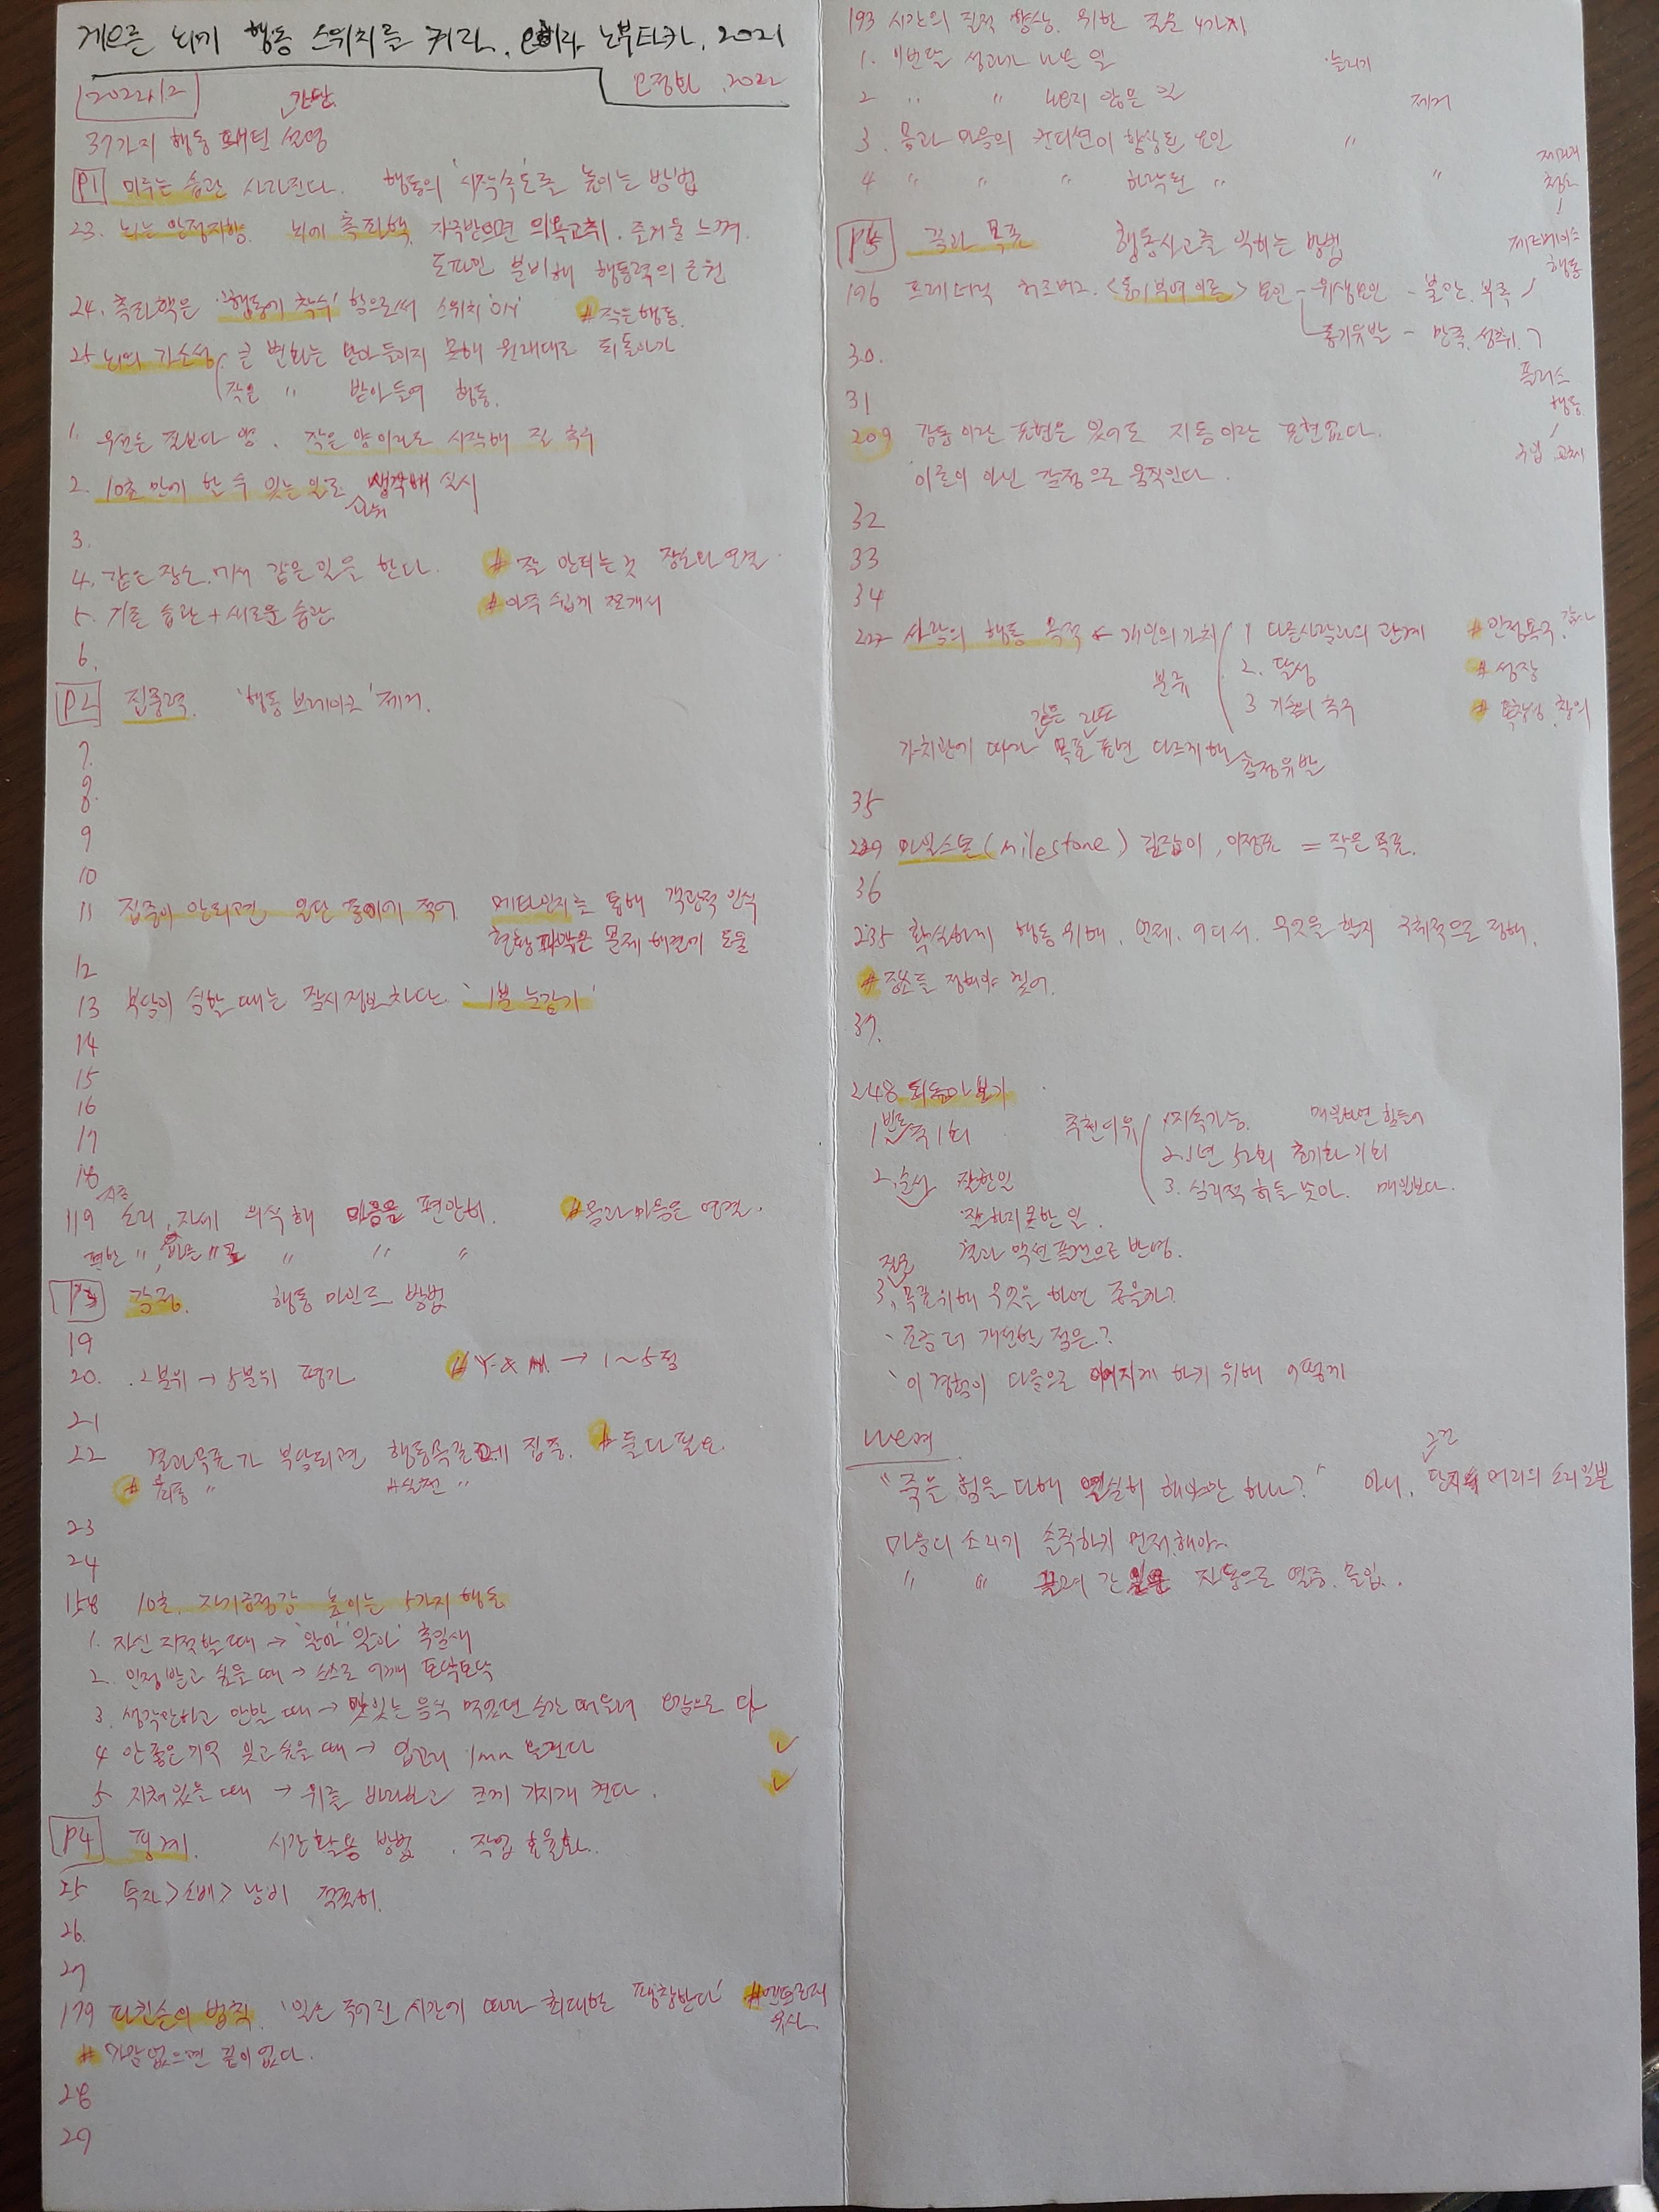 게으른 뇌에 행동 스위치를 켜라. 오히라 노부타카. 2021
오정빈, 2022
2022.12
간단
37가지 행동 패턴 설명
P1 미루는 습관 사라진다. 행동의 '시작속도'를 높이는 방법
23. 뇌는 안정지향. 뇌에 측좌핵 자극받으면 의욕고취. 즐거움 느껴.
도파민 분비해 행동력의 근원
24. 측좌핵은 '행동에 착수' 함으로써 스위치 'ON' #작은행동.
25 뇌의 가소성 큰 변화는 받아들이지 못해 원래대로 되돌아가
작은 〃 받아들여 행동.
1. 우선은 질보다 양. 작은 양이라도 시작해 질 추구
2. 10초 만에 할 수 있는 일로 생각해 실시
3.
4. 같은 장소에서 같은 일을 한다. #잘 안되는 것 장소와 연결.
5. 기존 습관 + 새로운 습관. #아주 쉽게 쪼개서
6.
P2 집중력. '행동 브레이크' 제거.
7.
8.
9
10
11 집중이 안되면 일단 종이에 적어 메타인지를 통해 객관적 인식
현황파악은 문제 해결에 도움
12
13 부담이 심할 때는 잠시 정보차단. '1분 눈감기'
14
15
16
17
18
119 소리, 자세 의식해 마음을 편안히. #몸과 마음은 연결.
편한 〃, 〃 〃 〃 〃
P3 감정. 행동 마인드 방법
19
20. 2분위 → 5분위 평가 # Y & N → 1~5점
21
22 결과목표가 부담되면 행동목표에 집중. #둘다 필요.
#최종 〃 #실천 〃
23
24
158 10초. 자기긍정감 높이는 5가지 행동
1. 자신 자책할 때 → '알아' '알아' 혹일새
2. 인정받고 싶을 때 → 스스로 어깨 토닥토닥
3. 생각만하고 안할 때 → 맛있는 음식 먹었던 순간 떠올려 오감으로
4 안좋은 기억 잊고싶을 때 → 입꼬리 1mm 올린다
5 지쳐있을 때 → 위를 바라보고 크게 기지개 켠다.
P4 핑계. 시간활용 방법. 작업 효율화.
25 투자>소비>낭비 적절히.
26.
27
179 파킨슨의 법칙. '일은 주어진 시간에 따라 최대한 팽창한다' #엔트로피 유사.
#마감없으면 끝이없다.
28
29
193 시간의 질적 향상. 위한 질문 4가지
1. 이번달 성과가 나온 일 늘리기
2 〃 〃 나오지 않은 일 제거
3. 몸과 마음의 컨디션이 향상된 요인 〃
4 〃 〃 〃 하락된 〃 〃
P5 꿈과 목표 행동사고를 익히는 방법
196 프레더릭 허즈버그. <동기부여이론> 요인 - 위생요인 - 불만. 부족
동기유발 - 만족. 성취
제로베이스
행동
플러스
행동
30.
31
209 감동이란 표현은 있어도 지동이란 표현없다.
이론이 아닌 감정으로 움직인다.
32
33
34
사람의 행동 목적 ← 개인의 가치 분류
1 다른사람과의 관계 #인정욕구.
2. 달성 #성장
3 기술의 추구 #독창성. 창의
가치관에 따라 같은 목표라도 표현 다르게해 감정유발
35
229 마일스톤(milestone) 길잡이, 이정표 = 작은 목표.
36
235 확실하게 행동 위해. 언제. 어디서. 무엇을 할지 구체적으로 정해.
#장소를 정해야 찾어.
37.
248 되돌아보기.
1 빈도 주1회 추천이유 1지속가능. 매일하면 힘들어
2. 1년 52회 초기화 기회
3. 심리적 허들 낮아. 매일보다.
2. 순서 잘한일
잘하지 못한 일.
결과 액션플랜으로 반영.
질문
3. 목표위해 무엇을 하면 좋을까?
조금 더 개선할 점은?
이 경험이 다음으로 이어지게 하기 위해 어떻게
나오며
"죽을 힘을 다해 열실히 해야만 하나?" 아니, 그건 단지 머리의 소리일뿐
마음의 소리가 솔직하기 먼저.해야.
〃 〃 끌려 간 일은 자동으로 열중. 몰입.